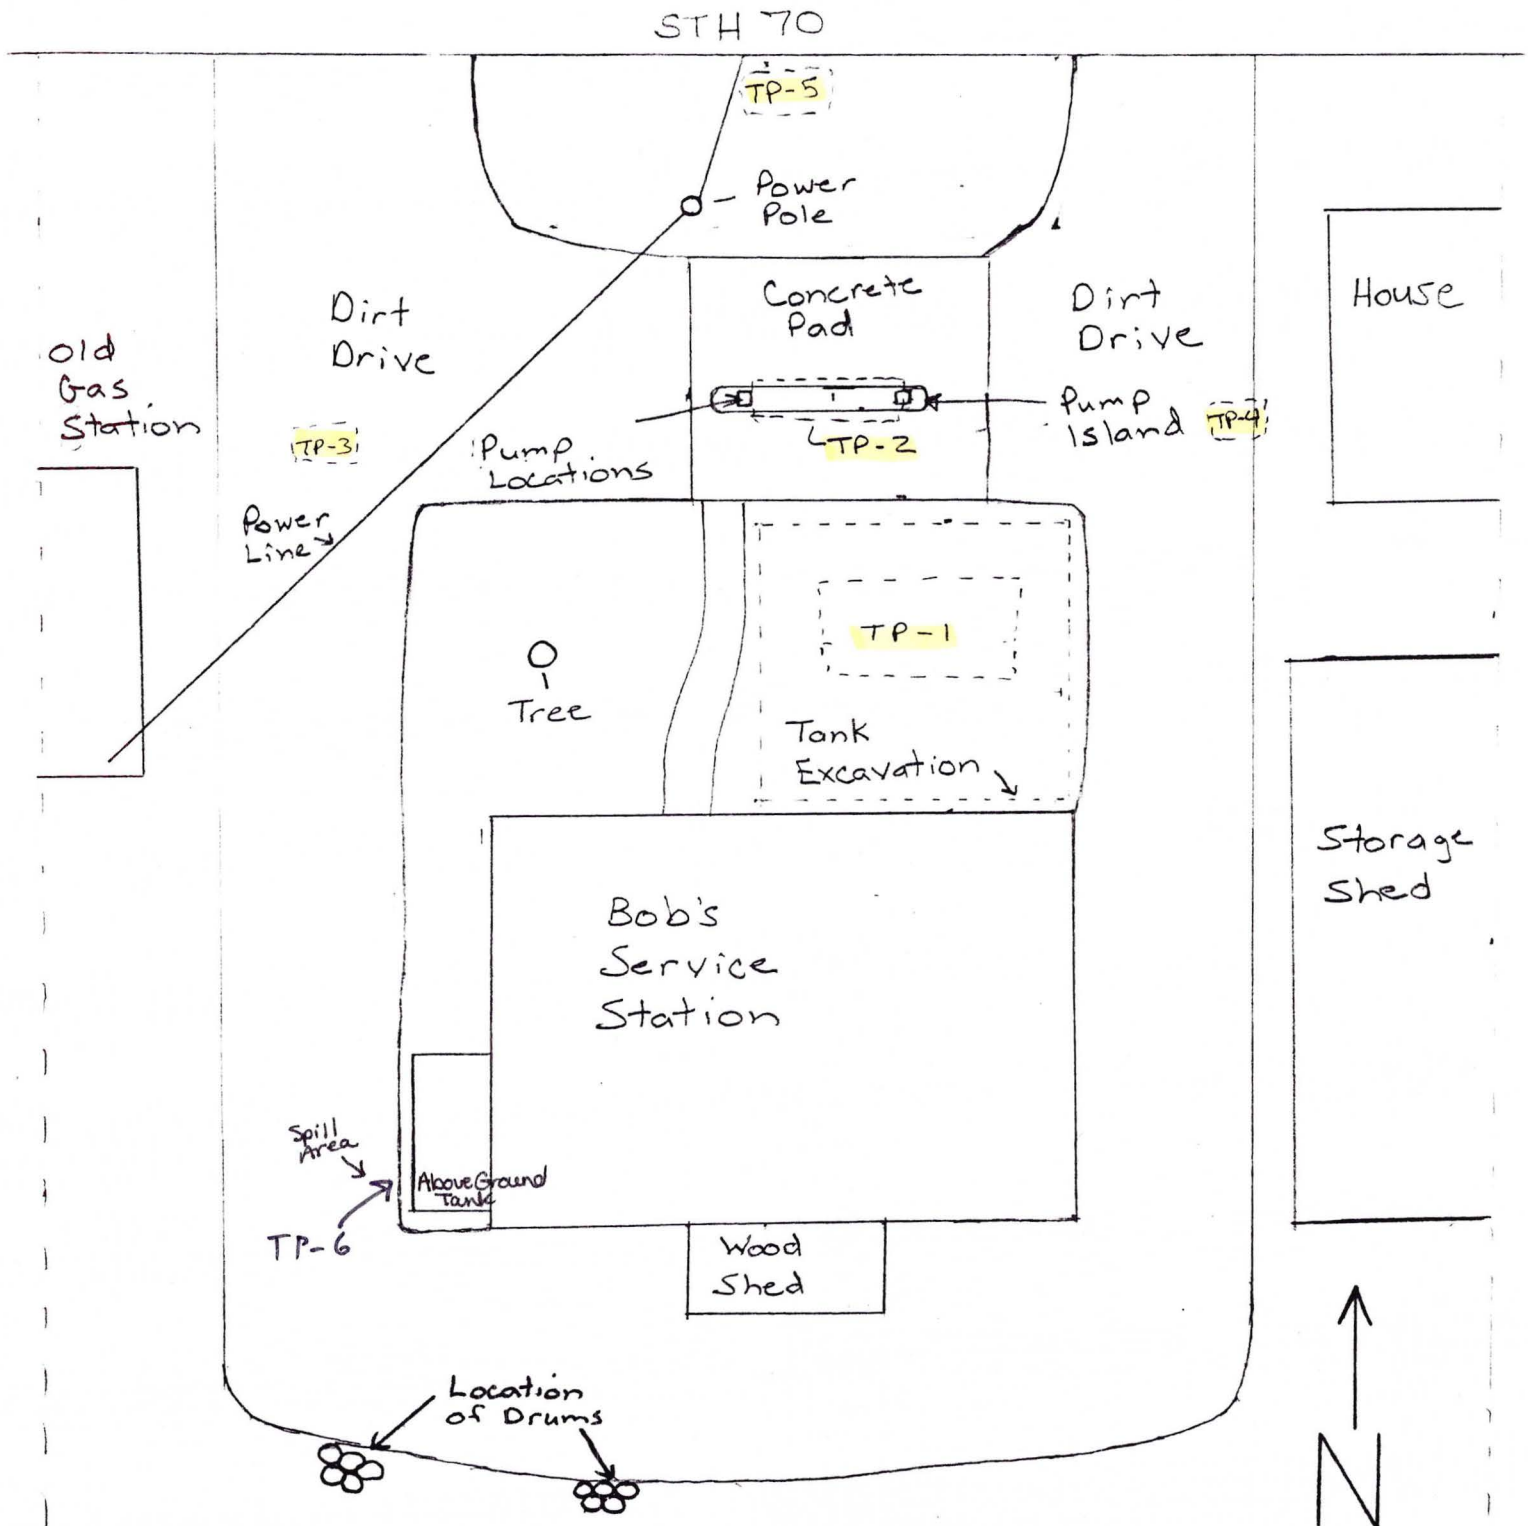 STH 70
TP-5
Power
Pole
Concrete
Pad
Dirt
Drive
Dirt
Drive
House
Old
Gas
Station
Pump
Island
TP-4
TP-3
Pump
Locations
TP-2
Power
Line
TP-1
Tree
Tank
Excavation
Storage
Shed
Bob's
Service
Station
Spill
Area
Above Ground
Tank
TP-6
Wood
Shed
Location
of Drums
N